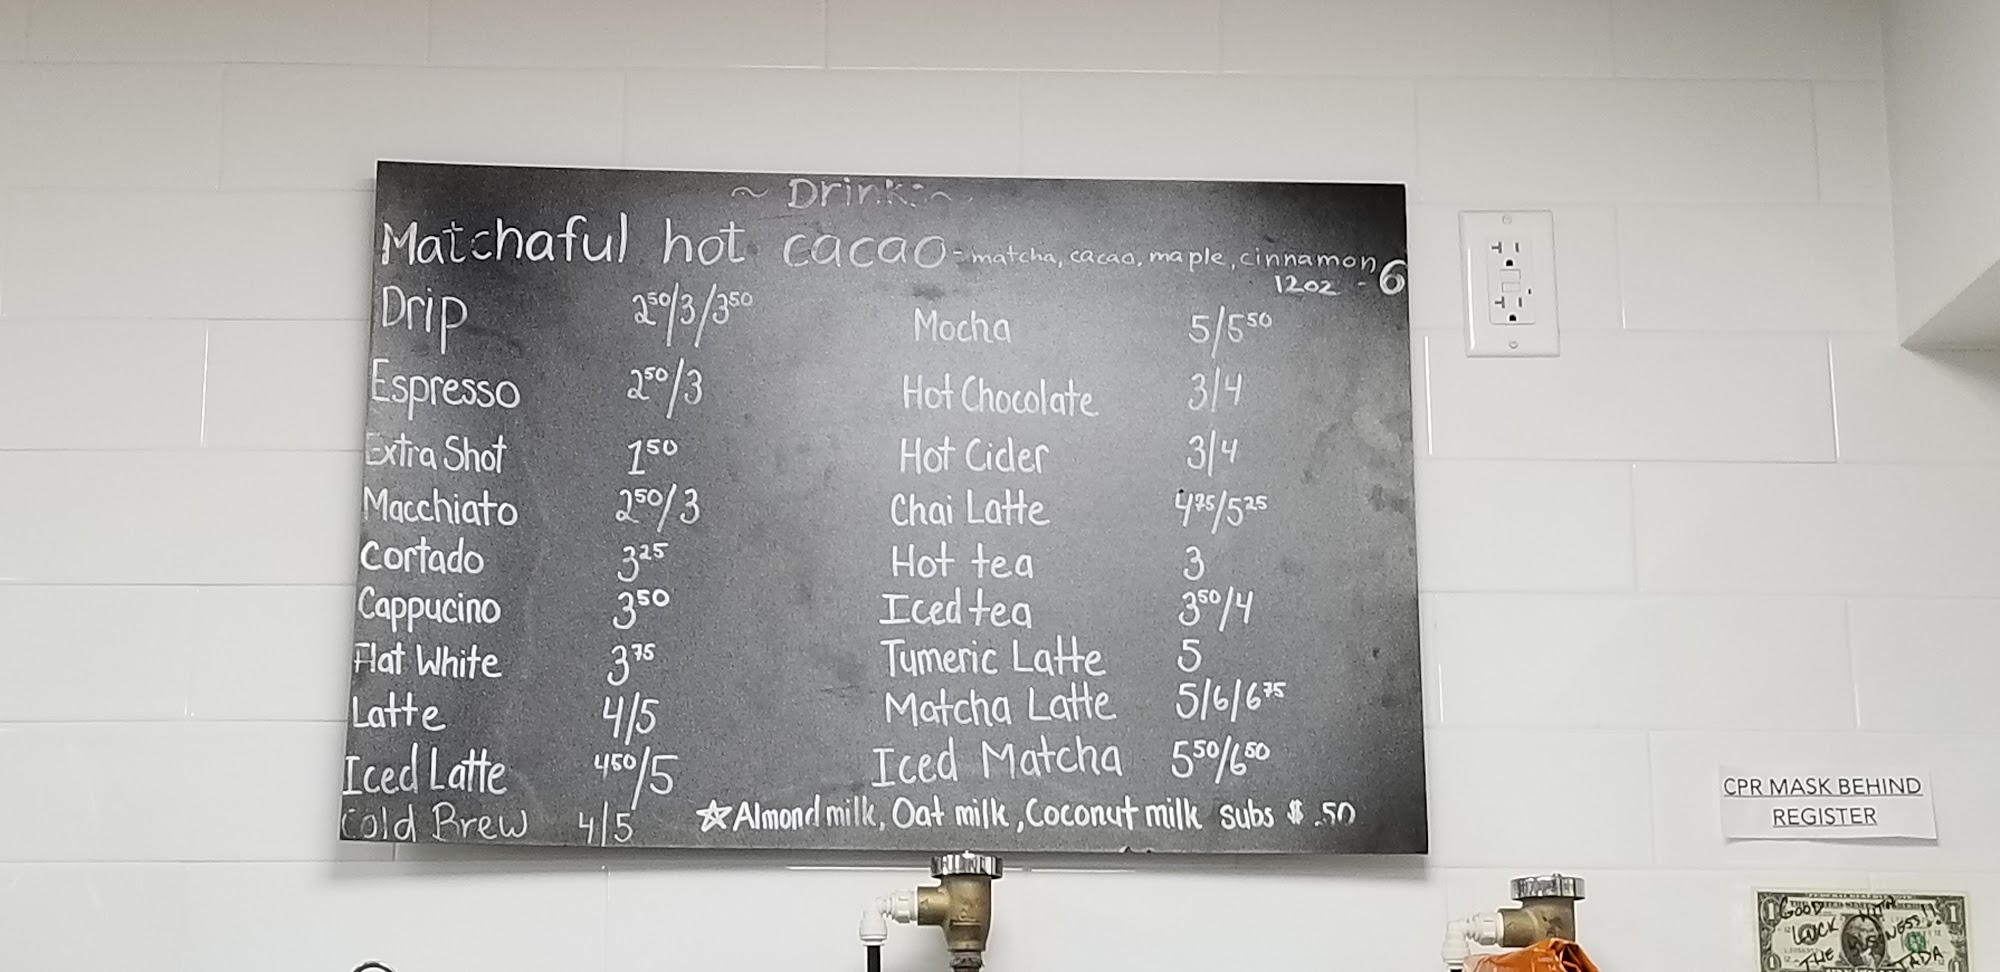 ~ Drinks ~
Matchaful hot cacao - matcha, cacao, maple, cinnamon 6
12oz -
Drip 2⁵⁰/3/3⁵⁰
Espresso 2⁵⁰/3
Extra Shot 1⁵⁰
Macchiato 2⁵⁰/3
Cortado 3²⁵
Cappucino 3⁵⁰
Flat White 3⁷⁵
Latte 4/5
Iced Latte 4⁵⁰/5
Cold Brew 4/5
Mocha 5/5⁵⁰
Hot Chocolate 3/4
Hot Cider 3/4
Chai Latte 4⁷⁵/5²⁵
Hot tea 3
Iced tea 3⁵⁰/4
Tumeric Latte 5
Matcha Latte 5/6/6⁷⁵
Iced Matcha 5⁵⁰/6⁵⁰
☆ Almond milk, Oat milk, Coconut milk subs $ .50
CPR MASK BEHIND
REGISTER
GOOD
LUCK WITH
THE BUSINESS!!